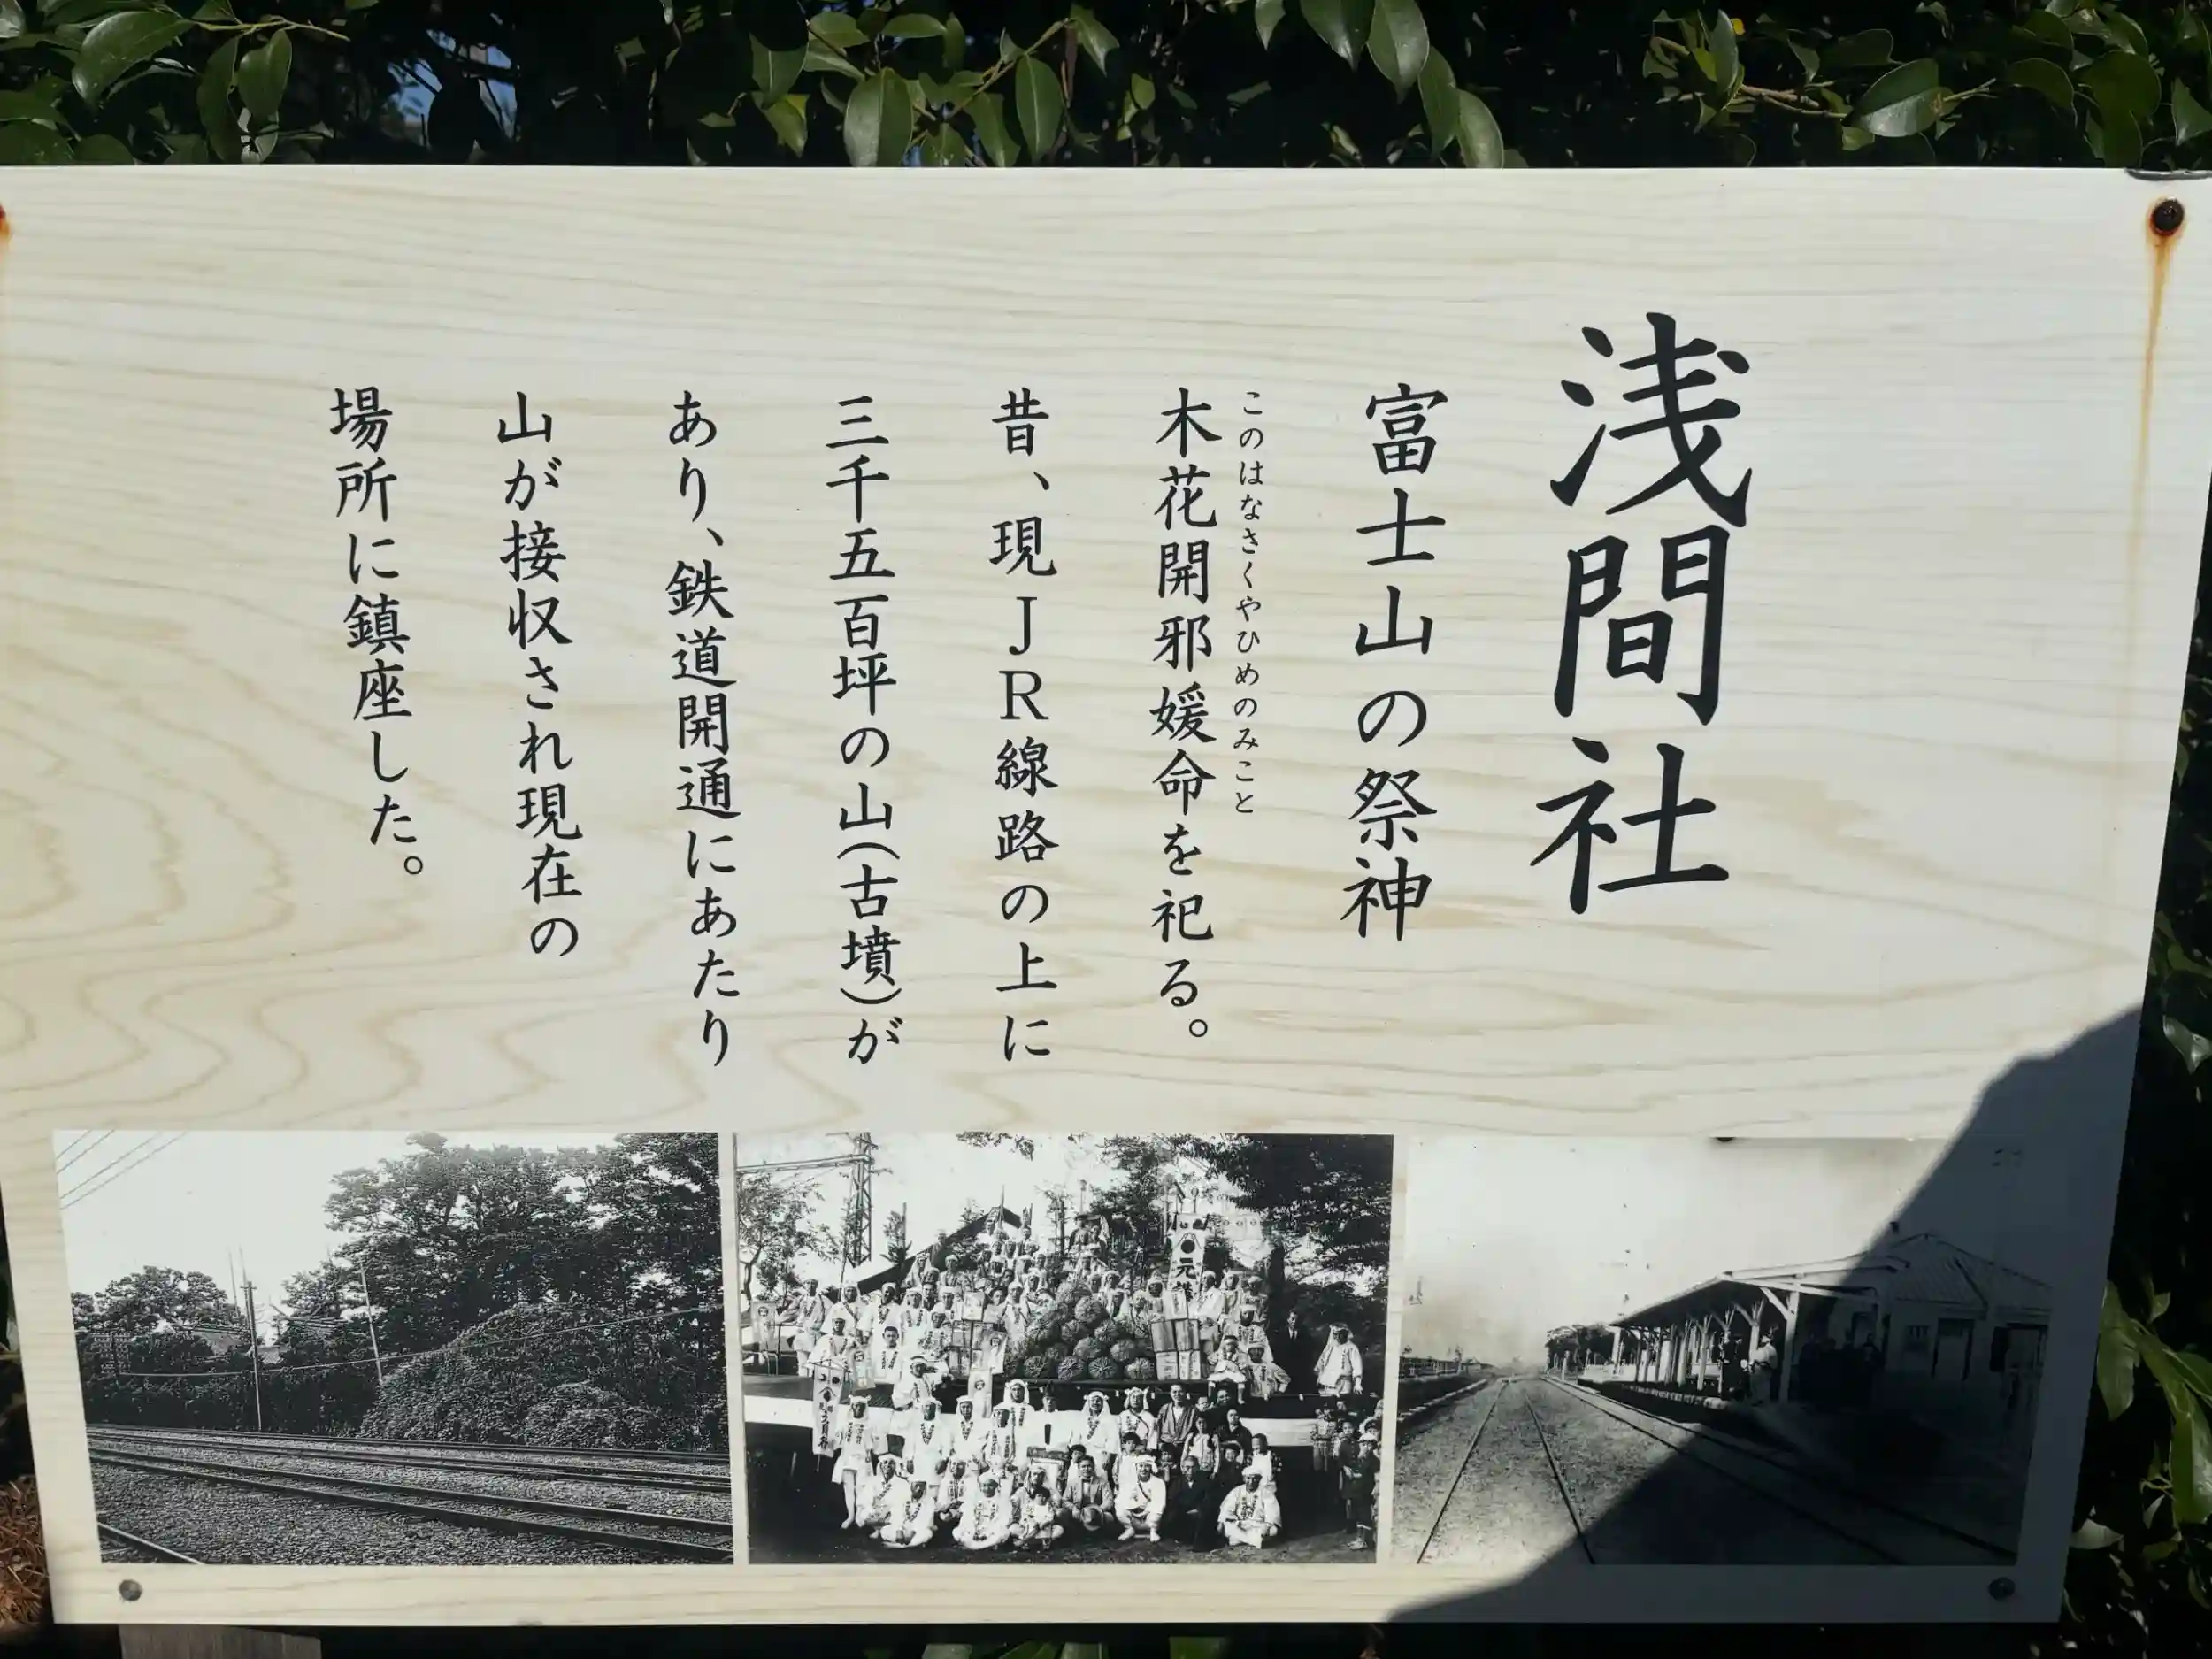 浅間社
富士山の祭神
このはなさくやひめのみこと
木花開邪媛命を祀る。
昔、現JR線路の上に
三千五百坪の山(古墳)が
あり、鉄道開通にあたり
山が接収され現在の
場所に鎮座した。
元